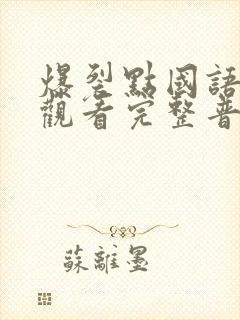 爆裂點國語
觀看完整普
蘇離墨